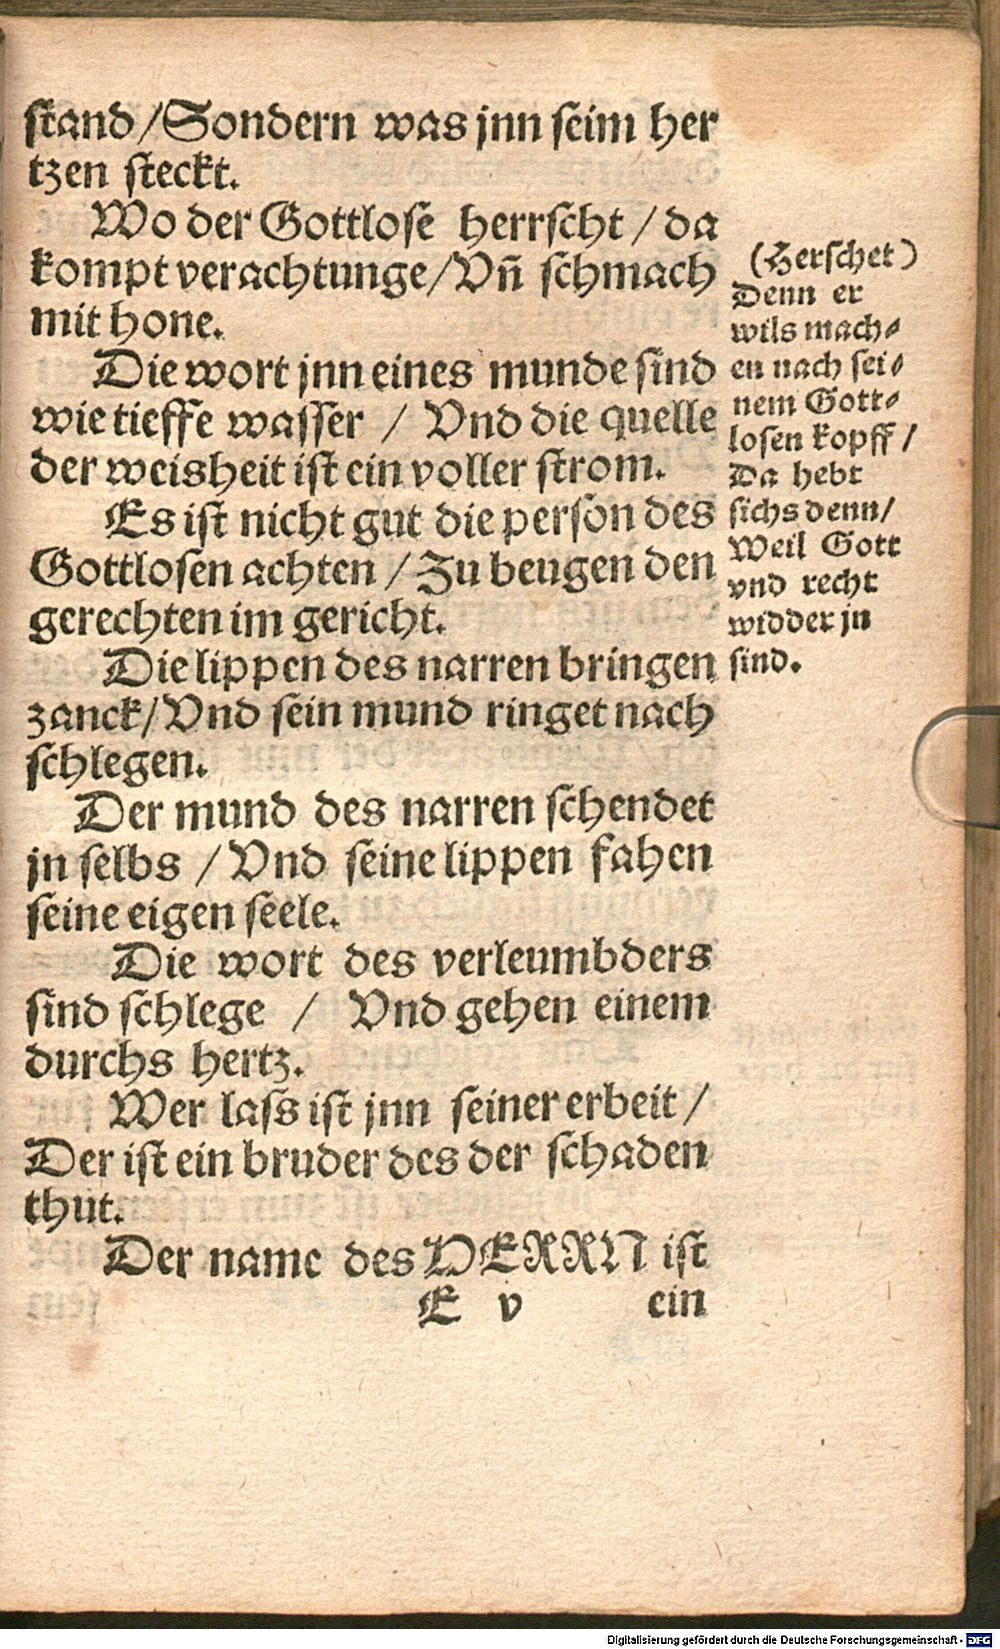 stand/Sondern was jnn seim her
tzen steckt.
Wo der Gottlose herrscht / da
kompt verachtunge/Vn̄ schmach
mit hone.
Die wort jnn eines munde sind
wie tieffe wasser / Vnd die quelle
der weisheit ist ein voller strom.
Es ist nicht gut die person des
Gottlosen achten / Zu beugen den
gerechten im gericht.
Die lippen des narren bringen
zanck/Vnd sein mund ringet nach
schlegen.
Der mund des narren schendet
jn selbs / Vnd seine lippen fahen
seine eigen seele.
Die wort des verleumbders
sind schlege / Vnd gehen einem
durchs hertz.
Wer lass ist jnn seiner erbeit /
Der ist ein bruder des der schaden
thut.
Der name des HERRN ist
E v ein
(Herschet)
Denn er
wils mach-
en nach sei-
nem Gott-
losen kopff /
Da hebt
sichs denn/
Weil Gott
vnd recht
widder jn
sind.
Digitalisierung gefördert durch die Deutsche Forschungsgemeinschaft - DFG